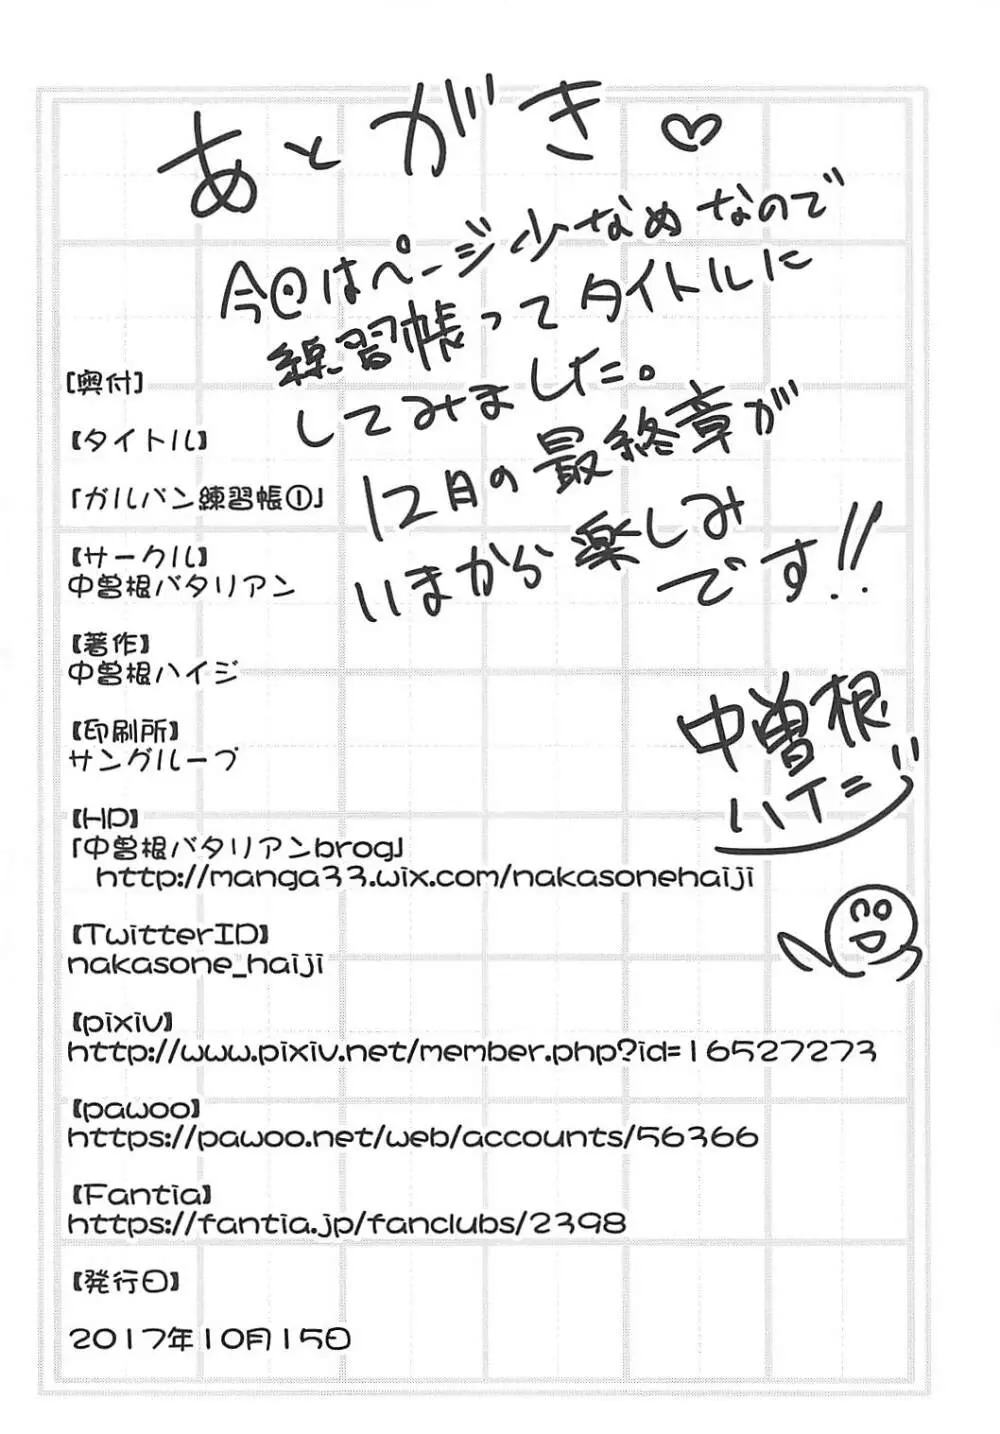 あとがき♡
今回はページ少なめなので
練習帳ってタイトルに
してみました。
12月の最終章が
いまから楽しみ
です!!
中曽根
ハイジ
[奥付]
【タイトル】
「ガルパン練習帳①」
【サークル】
中曽根バタリアン
【著作】
中曽根ハイジ
【印刷所】
サングループ
【HP】
「中曽根バタリアンbrog」
http://manga33.wix.com/nakasonehaiji
【TwitterID】
nakasone_haiji
【pixiv】
http://www.pixiv.net/member.php?id=16527273
【pawoo】
https://pawoo.net/web/accounts/56366
【Fantia】
https://fantia.jp/fanclubs/2398
【発行日】
2017年10月15日